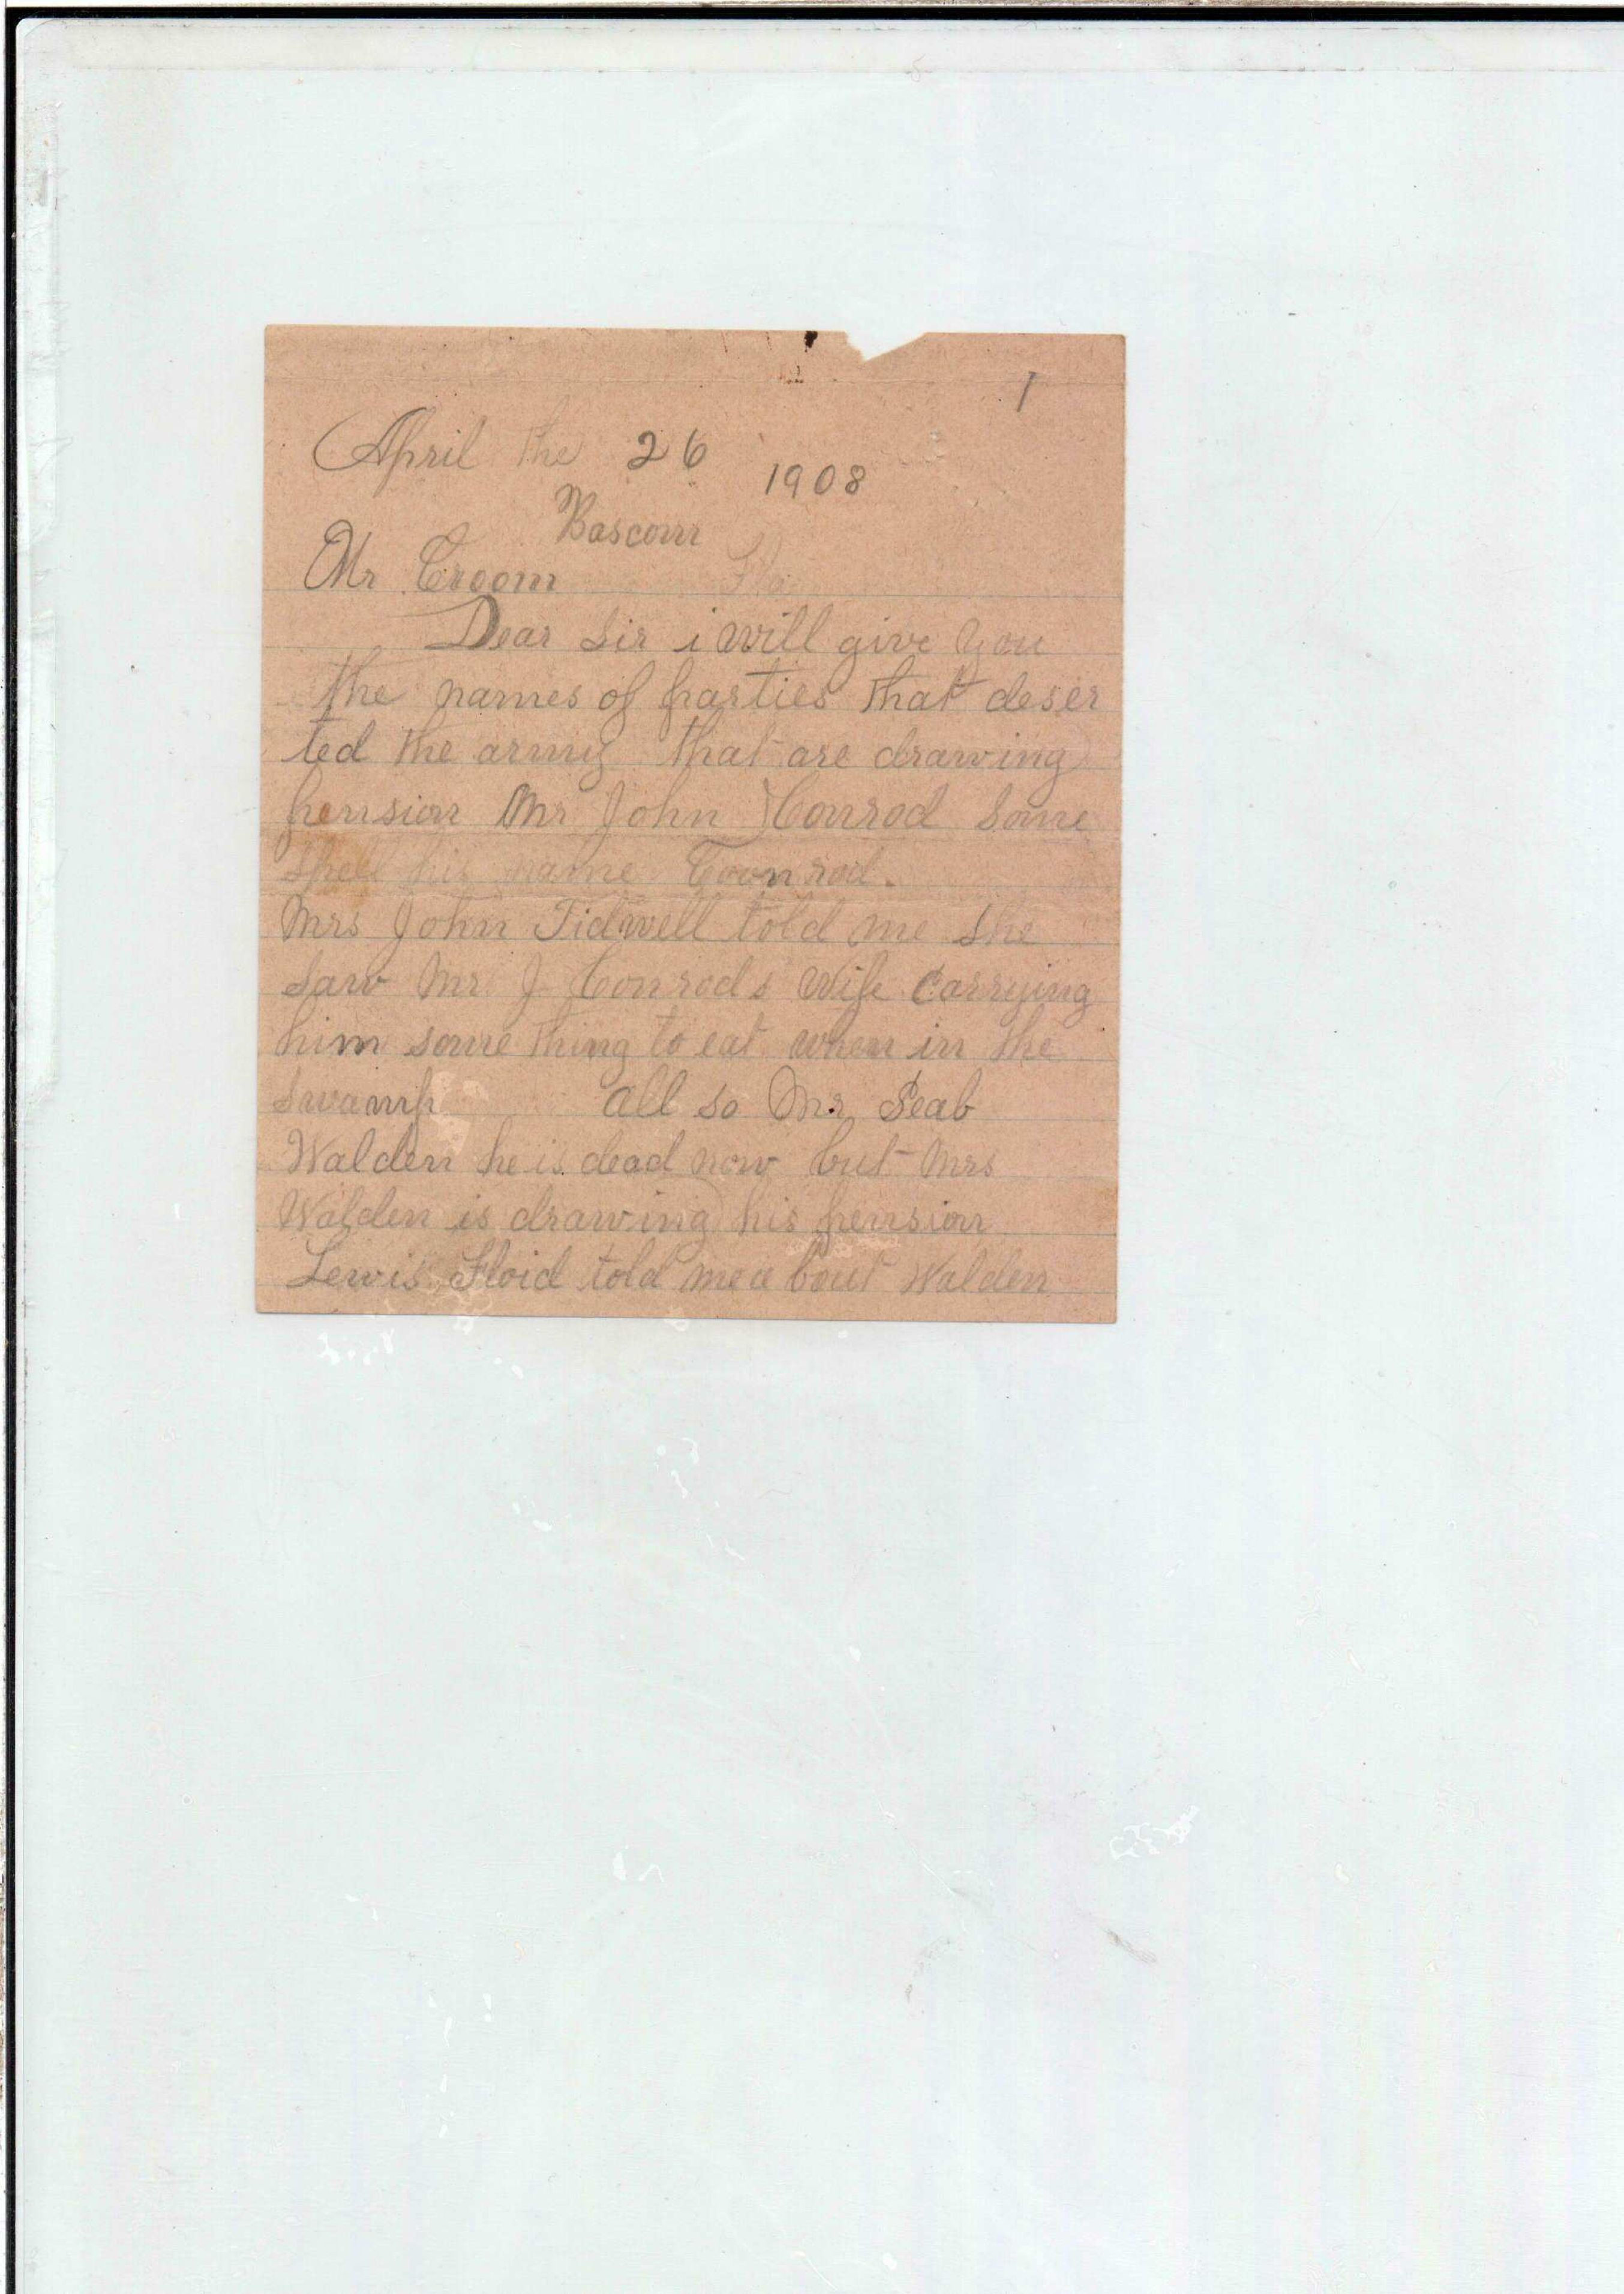 1
April the 26 1908
Bascom
Mr Croom Fla
Dear Sir i will give you
the names of parties that deser
ted the army that are drawing
pension Mr John Conrod Some
Spell his name Coonrod.
Mrs John Tidwell told me She
Saw Mr J Conrods wife Carrying
him some thing to eat when in the
Swamp all so Mr Seab
Walden he is dead now but Mrs
Walden is drawing his pension
Lewis Floid told me a bout Walden